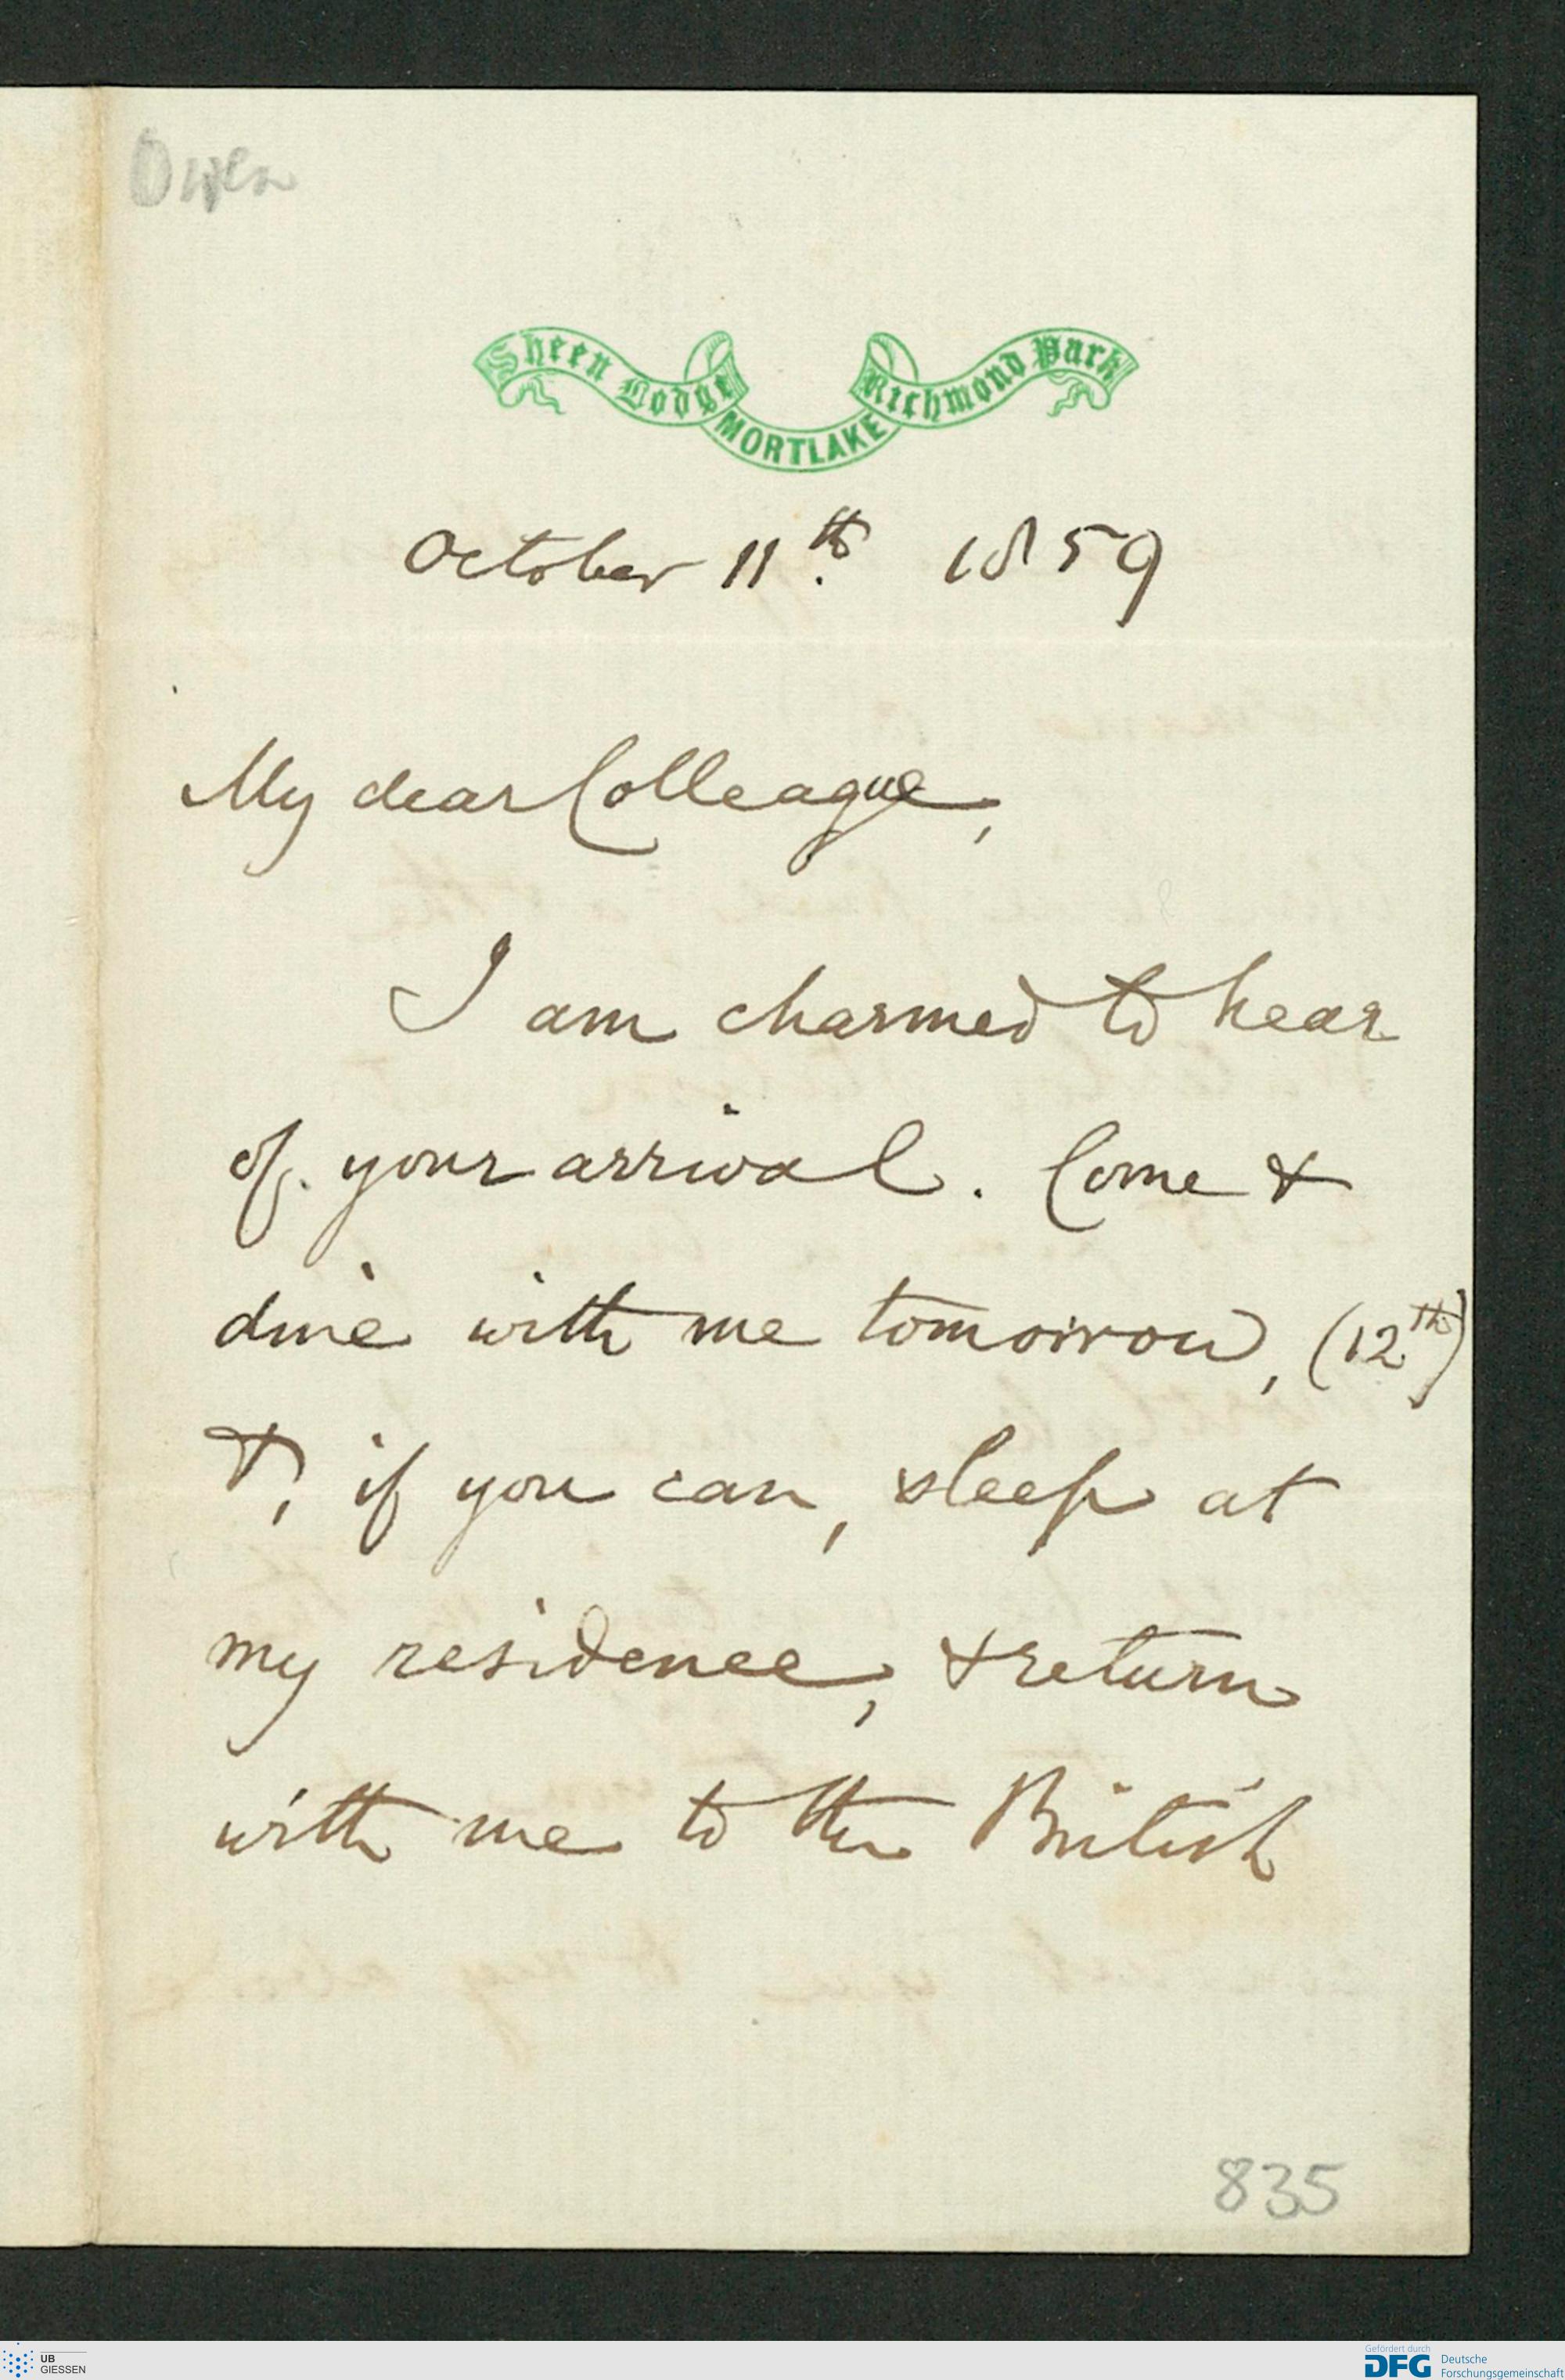 Owen
Sheen Lodge Richmond Park
MORTLAKE
October 11th. 1859
My dear Colleague,
I am charmed to hear
of your arrival. Come &
dine with me tomorrow, (12th)
&, if you can, sleep at
my residence, & return
with me to the British
835
UB
GIESSEN
Gefördert durch
DFG Deutsche
Forschungsgemeinschaft